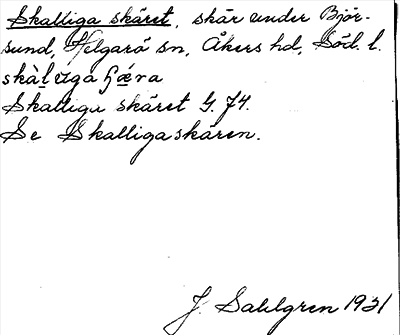 Skalliga skäret, skär under Björ-
sund, Helgarö sn, Åkers hd, Söd. l.
Skalliga skäret G. J4.
Se Skalligaskären.
J. Sahlgren 1931